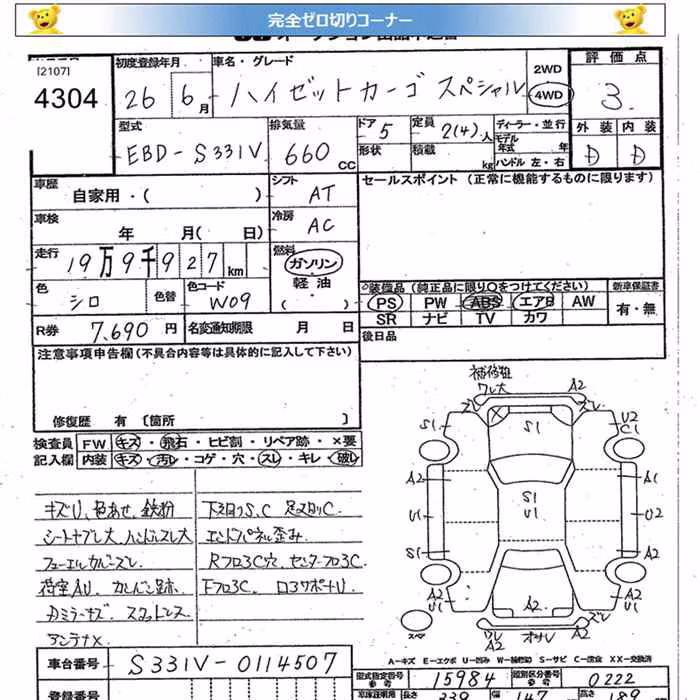 完全ゼロ切りコーナー
[2107]
4304
初度登録年月
26年 6月
車名・グレード
ハイゼットカーゴ スペシャル
2WD
4WD
評価点
3
型式
EBD-S331V
排気量
660 CC
ドア
5
形状
定員
2(4)人
積載
kg
ディーラー・並行
モデル年式 年
ハンドル 左・右
外装
D
内装
D
車歴
自家用・( )
シフト
AT
セールスポイント (正常に機能するものに限ります)
車検
年 月( 日)
冷房
AC
走行
19万9千927km
燃料
ガソリン
軽油
( )
色
シロ
色替
色コード
W09
◎装備品(純正品に限り○をつけてください)
PS PW ABS エアB AW
SR ナビ TV カワ
新車保証書
有・無
R券
7,690円
名変通知期限 月 日
後日品
注意事項申告欄(不具合内容等は具体的に記入して下さい)
修復歴 有 〔箇所 〕
検査員記入欄
FW キズ・飛石・ヒビ割・リペア跡・×要
内装 キズ・汚レ・コゲ・穴・スレ・キレ・破レ
キズU、色あせ、鉄粉
シートヤブレ大、ハンドルスレ大
フューエルカバーズレ
荷室AU、カンバン跡
Dミラーキズ スタットレス
アンテナX
下回りS.C 足回りC
エンドパネル歪み
Rフロ3C穴、センターフロ3C
Fフロ3C、ロアサポートU
補修社
ワレ大
A2
ズレ
ズレ
S1
S1
U2
C1
A2
A1
S1
U1
U1
U2
S1
A2
A2
U1
A2
A2
U1
ズレ
スペア
ワレ
A2
オサレ
A2
A-キズ E-エクボ U-凹み W-補修跡 S-サビ C-腐食 XX-交換済
車台番号
S331V-0114507
型式指定番号
参考
15984
類別区分番号
参考
0222
登録番号
車庫証明用
参考
長さ
339
幅
147
高さ
189